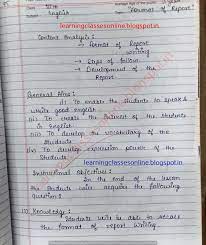 XIth
English
"Format of Report"
learningclassesonline.blogspot.in
Content Analysis:
→ Format of Report
Writing
→ Steps of follow
→ Development of the
Report
General Aims:
(i) To enable the students to speak &
write good english
(ii) To create the interest of the Students
in English
(iii) To develop the vocabulary of the
Students
(iv) To develop expression power of the
Students
learningclassesonline.blogspot.in
Instructional Objectives:
In the end of the lesson
the Students will acquire the following
Question:
Knowledge:
Students will be able to recall
the format of report writing.